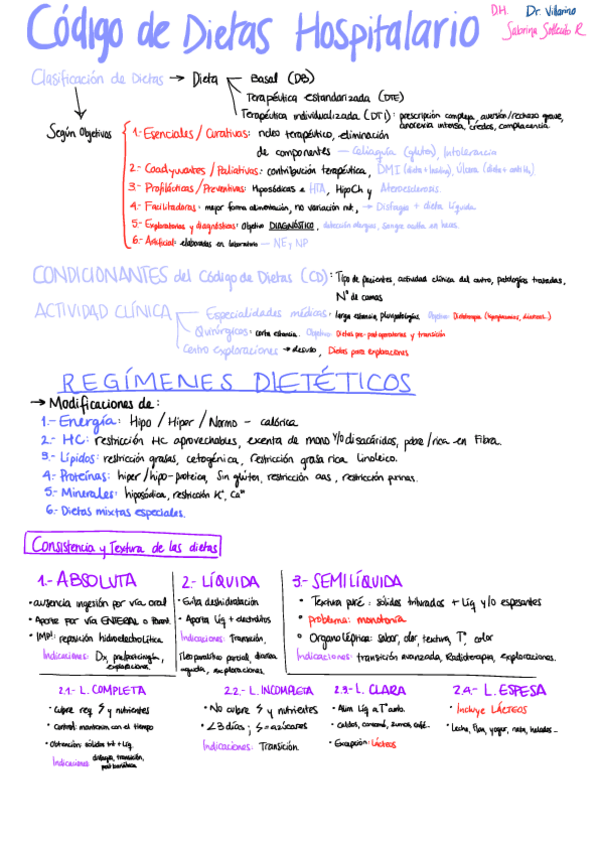 Código de Dietas Hospitalario
DH. Dr. Villarino
Sabrina R
Clasificación de Dietas → Dieta
Basal (DB)
Terapéutica estandarizada (DTE)
Terapéutica individualizada (DTI): prescripción compleja, aversión/rechazo grave,
anorexia intensa, credos, complacencia
Según Objetivos
1.- Esenciales/Curativas: núcleo terapéutico, eliminación
de componentes — Celiaquía (gluten), Intolerancia
2.- Coadyuvantes/Paliativas: contribución terapéutica, DMI (dieta + insulina), Úlcera (dieta + )
3.- Profilácticas/Preventivas: Hiposódicas e HTA, HipoCh y Aterosclerosis.
4.- Facilitadoras: mejor forma alimentación, no variación nut, → Disfagia + dieta Líquida
5.- Exploratorias y diagnósticas: Objetivo DIAGNÓSTICO, detección alergias, Sangre oculta en heces.
6.- Artificial: elaboradas en laboratorio — NE y NP
CONDICIONANTES del Código de Dietas (CD): Tipo de pacientes, actividad clínica del centro, patologías tratadas,
Nº de camas
ACTIVIDAD CLÍNICA
Especialidades médicas: larga estancia, pluripatologías. Objetivo: Dietoterapia
Quirúrgicos: corta estancia. Objetivo: Dietas pre-postoperatorias y transición
Centro Exploraciones → desuso, Dietas para exploraciones
REGÍMENES DIETÉTICOS
→ Modificaciones de:
1.- Energía: Hipo / Hiper / Normo - calórica
2.- HC: restricción HC aprovechables, exenta de mono y/o disacáridos, pobre/rica en Fibra.
3.- Lípidos: restricción grasas, cetogénica, restricción grasa rica Linoleico.
4.- Proteínas: hiper/hipo-proteica, Sin glúten, restricción aas, restricción purinas.
5.- Minerales: hiposódica, restricción K⁺, Ca⁺⁺
6.- Dietas mixtas especiales.
Consistencia y Textura de las dietas
1.- ABSOLUTA
• ausencia ingesión por vía oral
• Aporte por vía ENTERAL o Parent.
• IMP!: reposición hidroelectrolítica
Indicaciones: Dx, ,
exploraciones.
2.- LÍQUIDA
• Evita deshidratación
• Aporta Líq + electrolitos
Indicaciones: Transición,
Íleo paralítico parcial, diarrea
aguda, exploraciones
3.- SEMILÍQUIDA
• Textura puré: sólidos triturados + Líq y/o espesantes
• problema: monotonía
• Organoléptica: sabor, olor, textura, Tº, color
Indicaciones: transición avanzada, Radioterapia, exploraciones.
2.1- L. COMPLETA
• Cubre req y nutrientes
• Control: mantención con el tiempo
• Obtención: sólidos trit + Líq
Indicaciones: disfagia, transición,
2.2.- L. INCOMPLETA
• No cubre y nutrientes
• <3 días; = azúcares
Indicaciones: Transición.
2.3.- L. CLARA
• Alim Líq a Tº amb.
• Caldos, consomé, zumos, café..
• Excepción: Lácteos
2.4.- L. ESPESA
• Incluye LÁCTEOS
• Leche, flan, yogur, nata, helados...